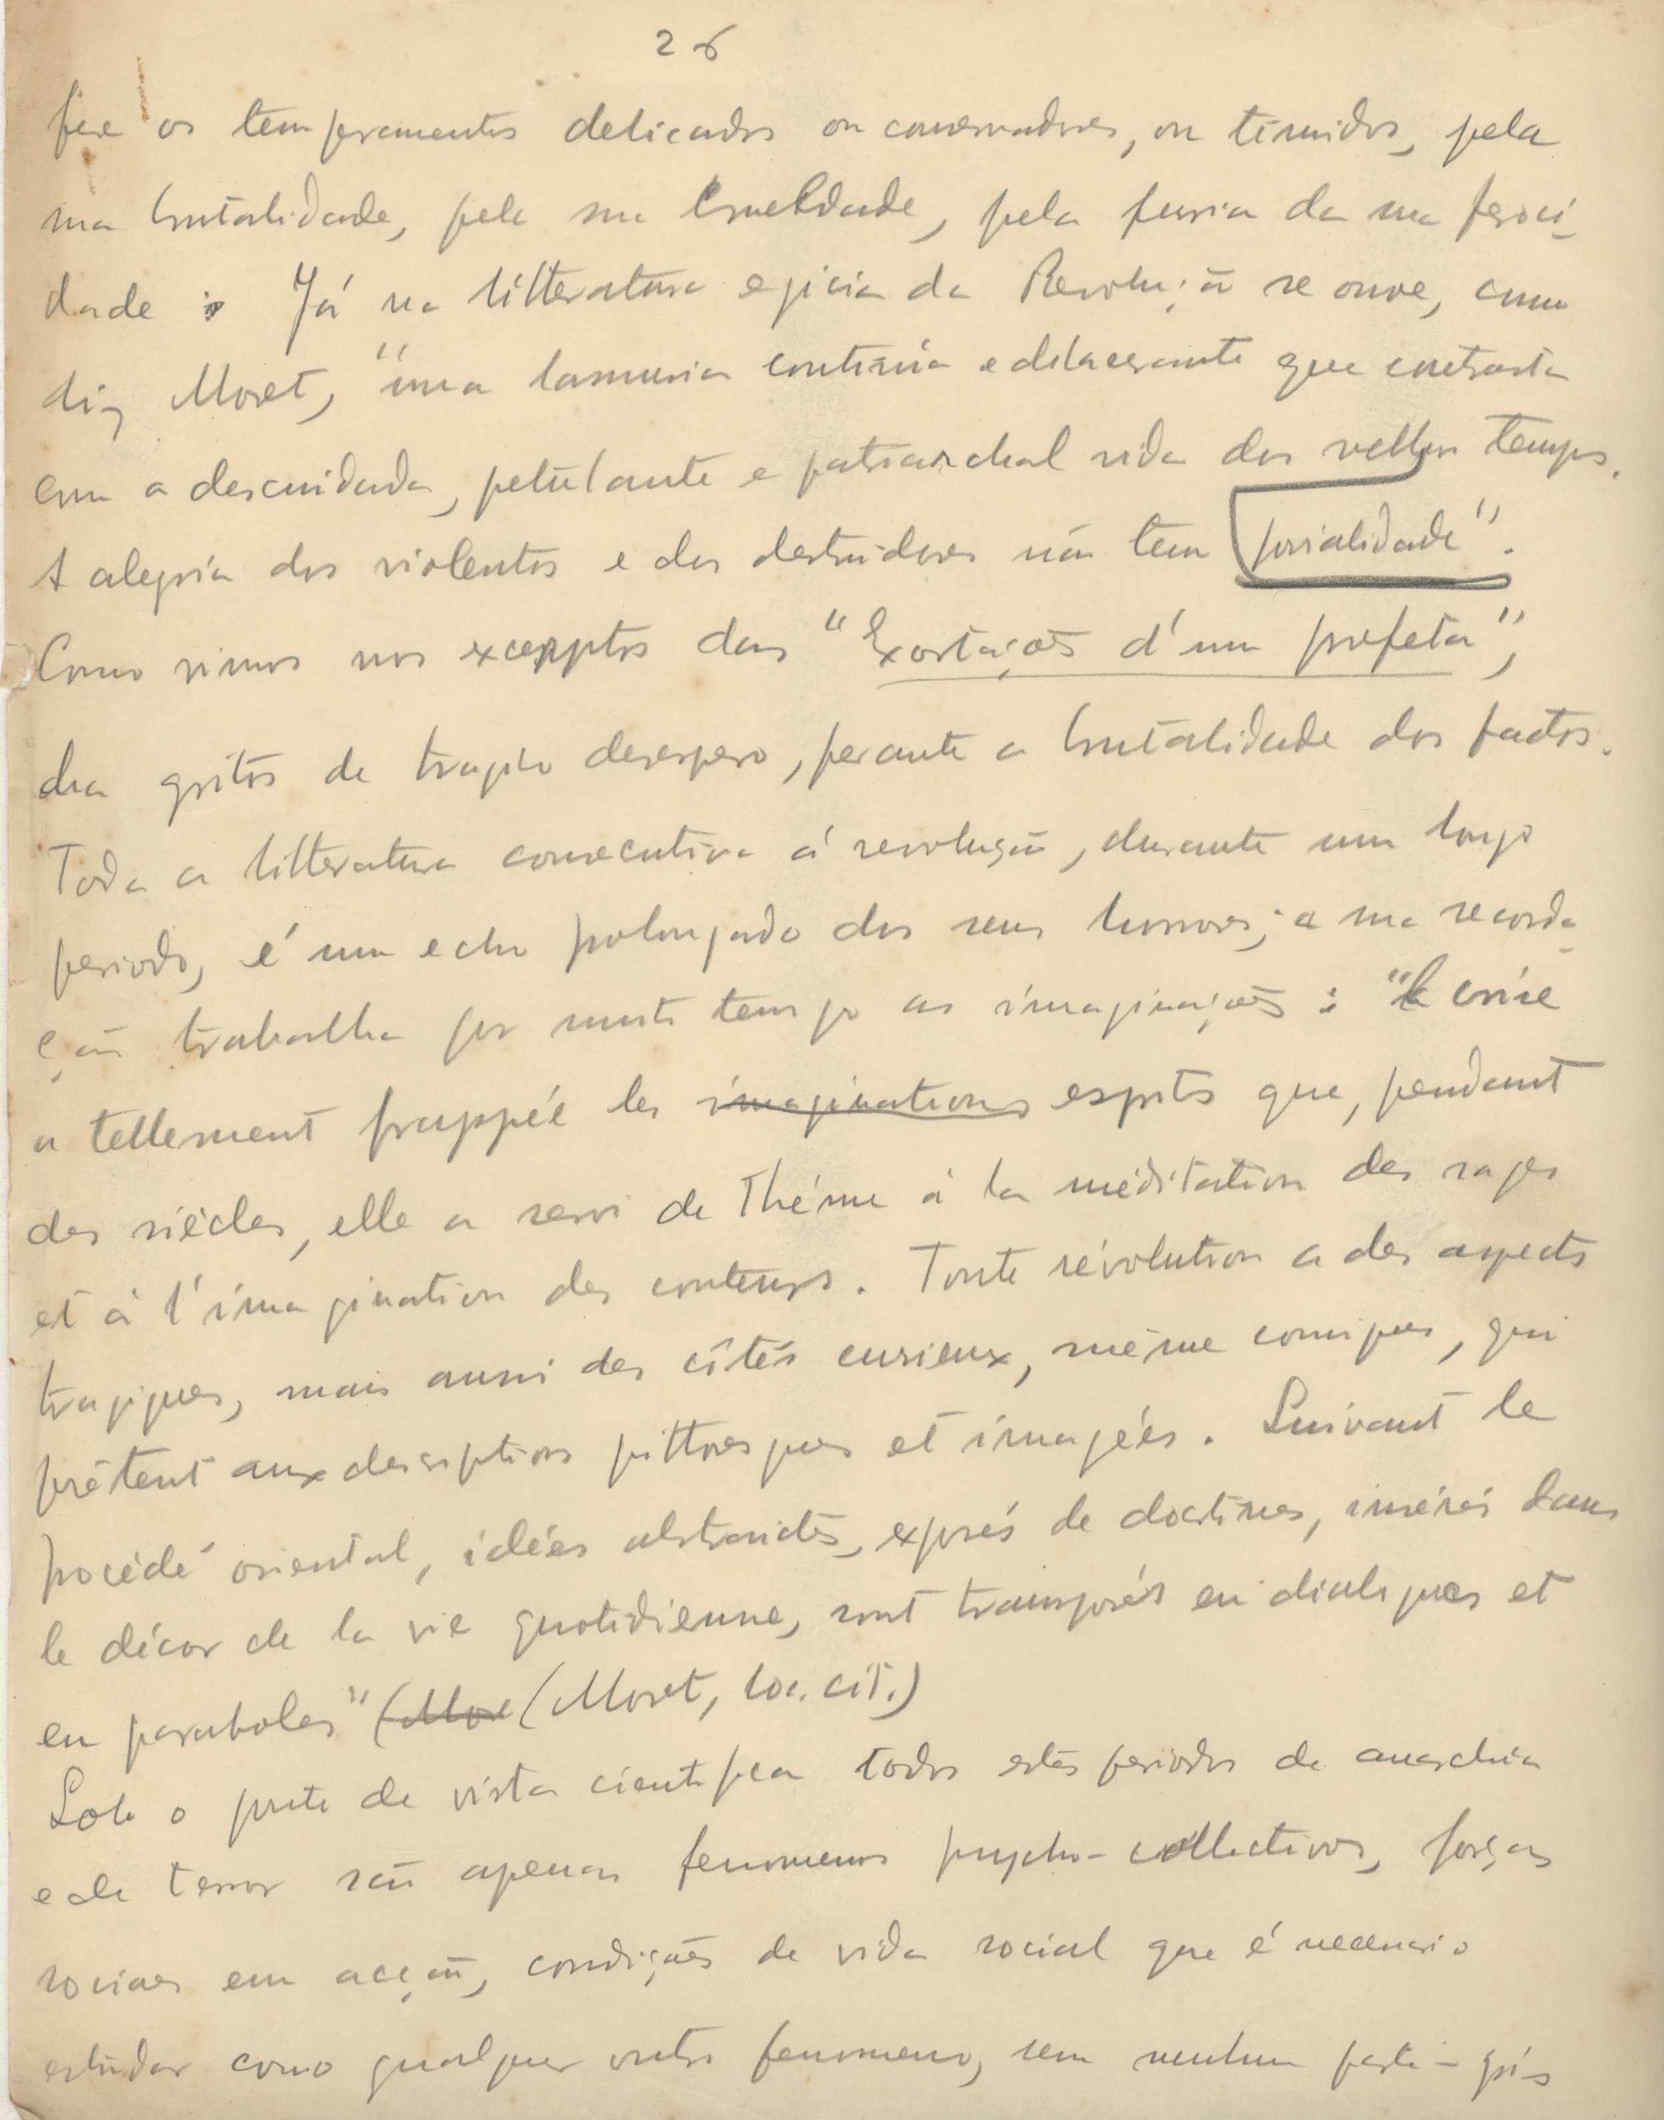 26
fere os temperamentos delicados ou conservadores, ou timidos, pela
sua brutalidade, pela sua crueldade, pela furia da sua feroci-
dade. Já na litteratura egicia da Revolução se ouve, como
diz Moret, "uma lamuria continúa e dilacerante que contrasta
com a descuidada, petulante e patriarchal vida dos velhos tempos.
A alegria dos violentos e dos destruidores não tem jovialidade".
Como vimos nos excerptos das "Exortações d'um profeta",
ha gritos de tragico desespero, perante a brutalidade dos factos.
Toda a litteratura consecutiva á revolução, durante um longo
periodo, é um echo prolongado dos seus horrores; e a sua recorda-
ção trabalha por muito tempo as imaginações: "la crise
a tellement frappée les imaginations esprits que, pendant
des siècles, elle a servi de thême à la méditation des sages
et à l'imagination des conteurs. Toute révolution a des aspects
tragiques, mais aussi des côtés curieux, même comiques, qui
prêtent aux descriptions pittoresques et imagées. Suivant le
procédé oriental, idées abstraites, exposés de doctrines, insérés dans
le décor de la vie quotidienne, sont transposés en dialogues et
en paraboles" (More (Moret, loc. cit.)
Sob o ponto de vista cientifico todos estes periodos de anarchia
e de terror são apenas fenomenos psycho-collectivos, forças
sociaes em acção, condições de vida social que é necessario
estudar como qualquer outro fenomeno, sem nenhum parti-pris